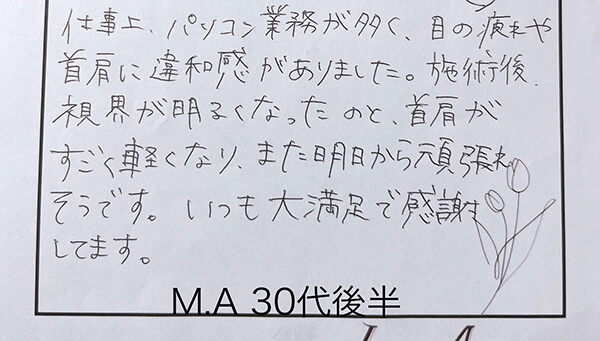 仕事上、パソコン業務が多く、目の疲れや
首肩に違和感がありました。施術後、
視界が明るくなったのと、首肩が
すごく軽くなり、また明日から頑張れ
そうです。いつも大満足で感謝
してます。
M.A 30代後半